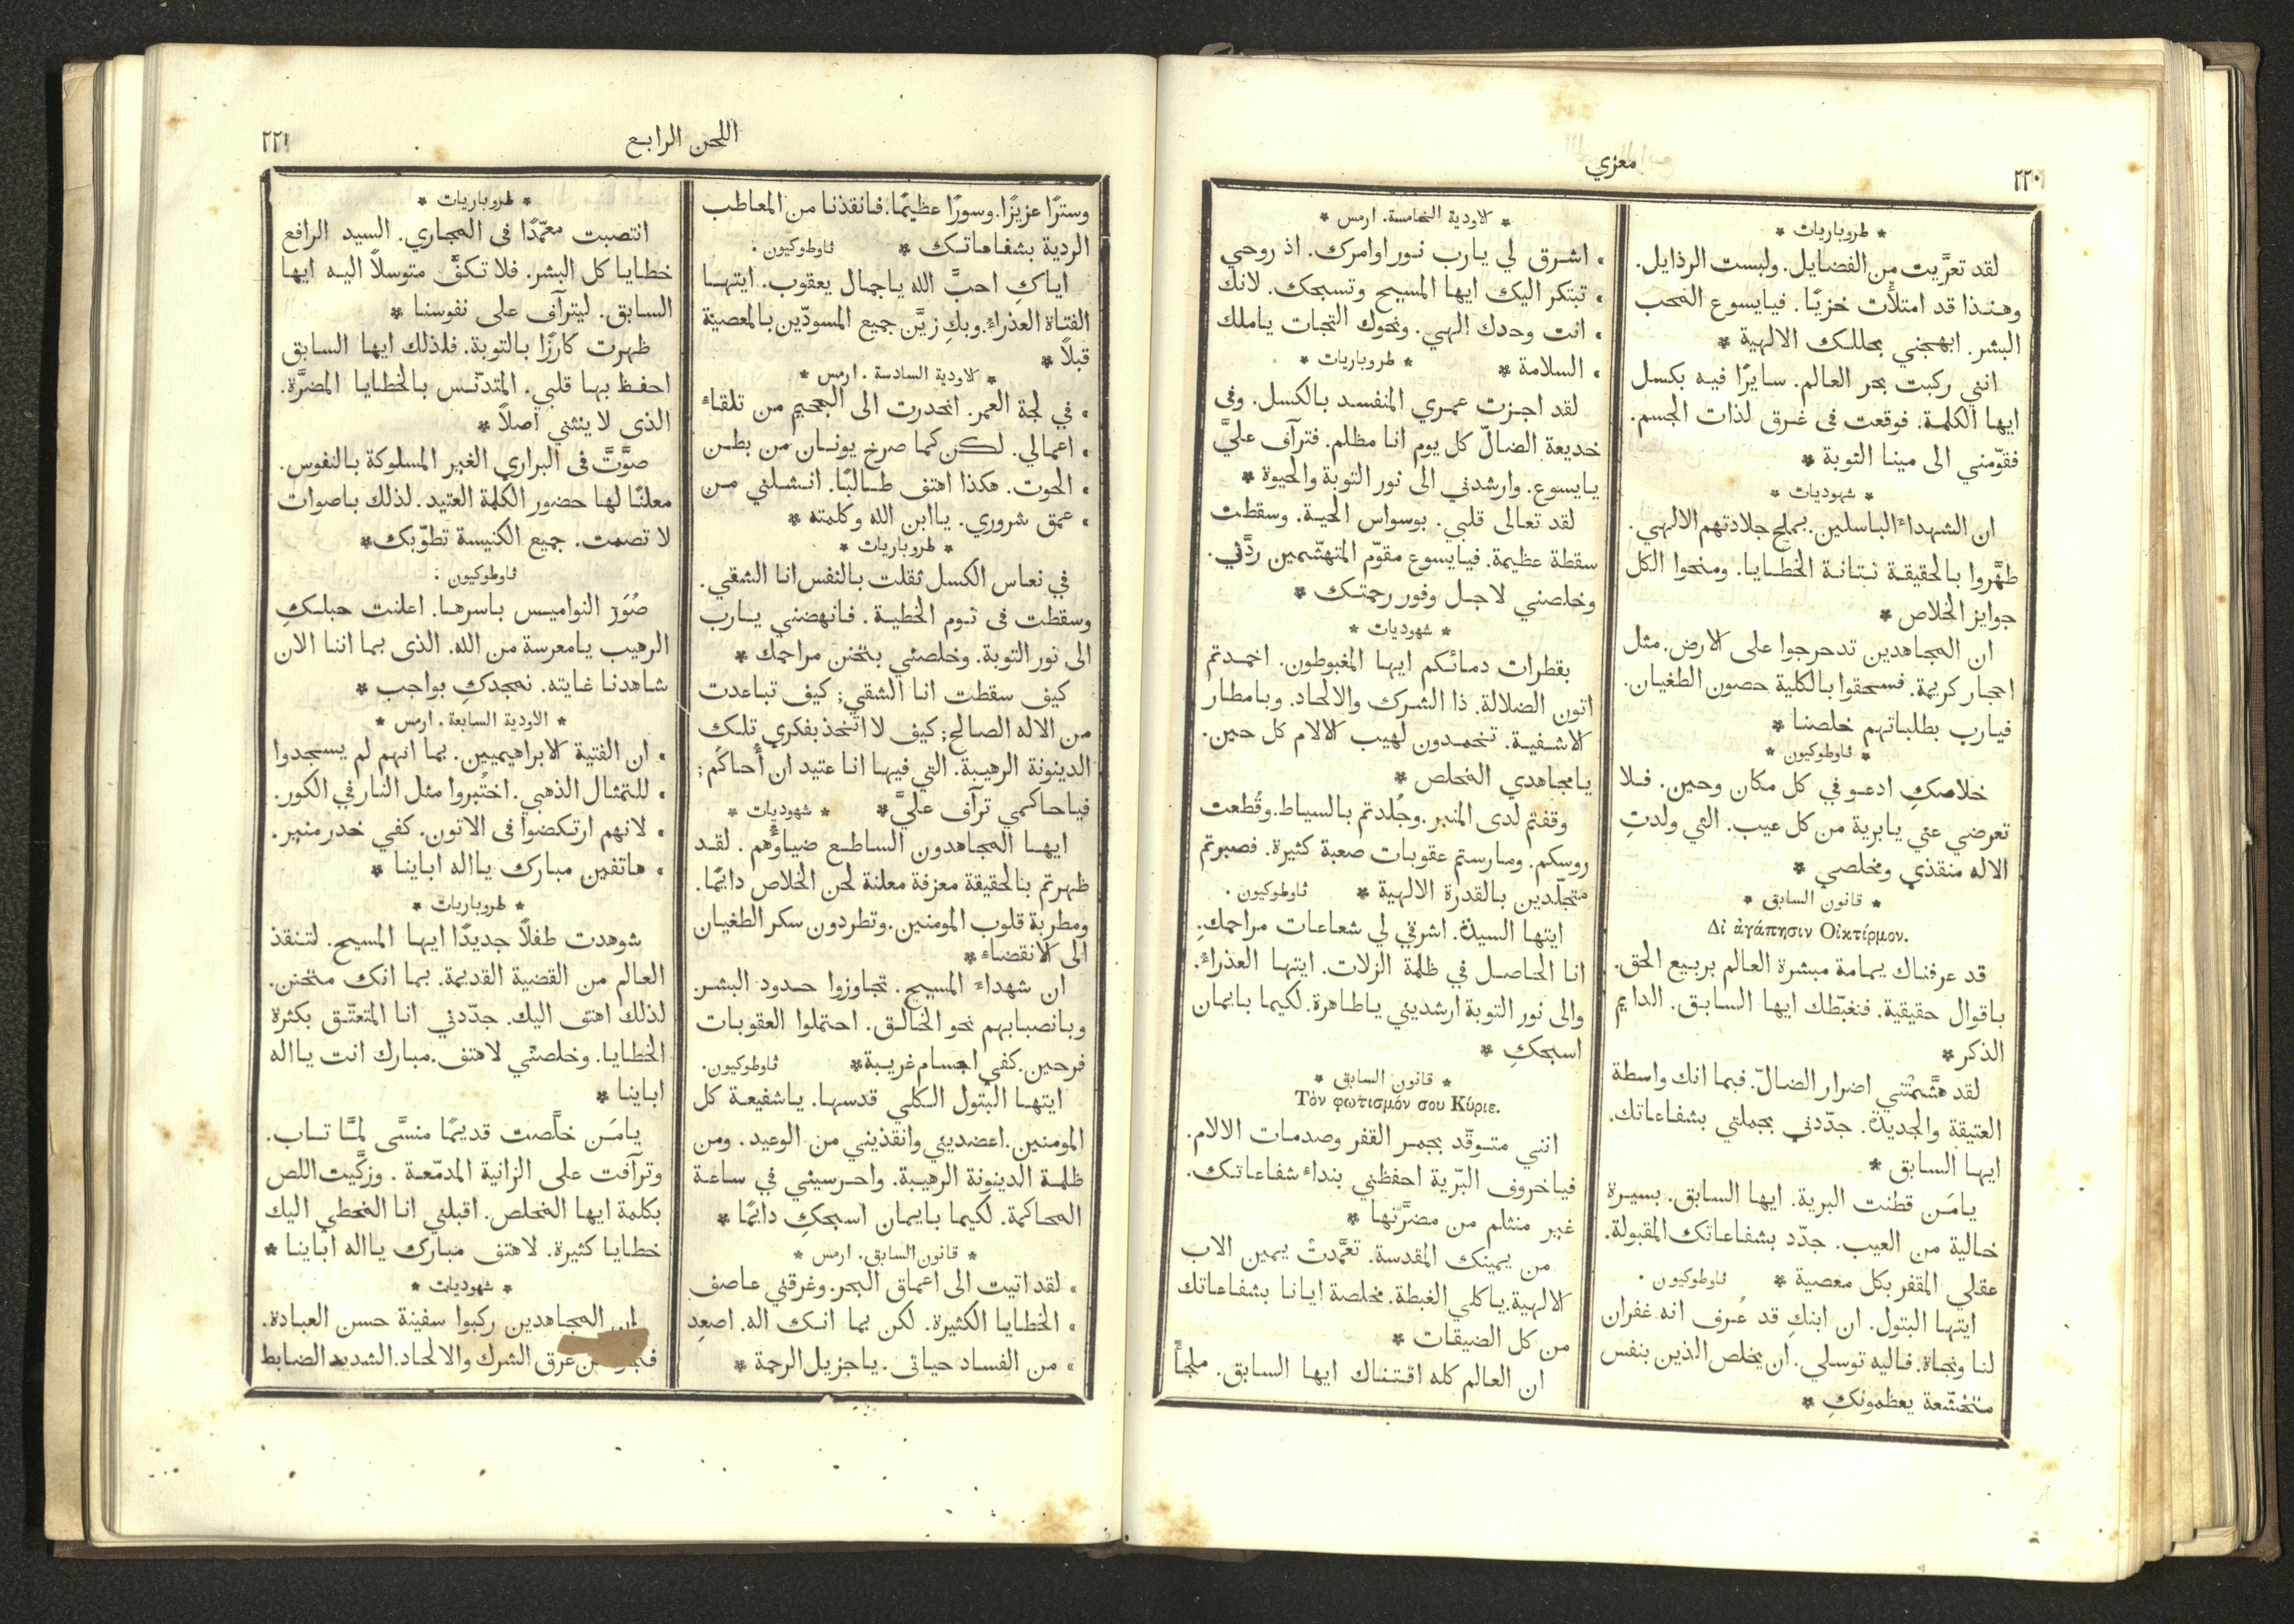 ٢٢٠
معزي
* طروباريات *
لقد تعرَّيت من الفضايل. ولبست الرذايل.
وهنذا قد امتلأت خزيًا. فيايسوع المحب
البشر. ابهجني بحللك الالهية *
انني ركبت بحر العالم. سايرًا فيه بكسل
ايها الكلمة. فوقعت فى غرق لذات الجسم.
فقوّمني الى مينا التوبة *
* شهوديات *
ان الشهداء الباسلين. بملح جلادتهم الالهي.
طهَّروا بالحقيقة نتانة الخطايا. ومنحوا الكل
جوايز الخلاص *
ان المجاهدين تدحرجوا على الارض. مثل
احجار كريمة. فسحقوا بالكلية حصون الطغيان.
فيارب بطلباتهم خلصنا *
* ثاوطوكيون *
خلاصكِ ادعو في كل مكان وحين. فلا
تعرضي عني يابرية من كل عيب. التي ولدتِ
الاله منقذي ومخلصي *
* قانون السابق *
Δι ἀγάπησιν Οἰκτίρμον.
قد عرفناك يمامة مبشرة العالم بربيع الحق.
باقوال حقيقية. فنغبّطك ايها السابق. الدايم
الذكر *
لقد هشَّمتْني اضرار الضالّ. فبما انك واسطة
العتيقة والجديدة. جدّدني بجملتي بشفاعاتك.
ايها السابق *
يامَن قطنت البرية. ايها السابق. بسيرة
خالية من العيب. جدّد بشفاعاتك المقبولة.
عقلي المقفر بكل معصية * ثاوطوكيون.
ايتها البتول. ان ابنكِ قد عُرف انه غفران
لنا ونجاة. فاليه توسلي. ان يخلص الذين بنفس
متخشّعة يعظمونكِ *
* الاودية الخامسة. ارمس *
» اشرق لي يارب نور اوامرك. اذ روحي
» تبتكر اليك ايها المسيح وتسبحك. لانك
» انت وحدك الهي. ونحوك التجات ياملك
» السلامة * * طروباريات *
لقد اجزت عمري المنفسد بالكسل. وفى
خديعة الضالّ كل يوم انا مظلم. فترآف عليَّ
يايسوع. وارشدني الى نور التوبة والحيوة *
لقد تعالى قلبي. بوسواس الحية. وسقطت
سقطة عظيمة. فيايسوع مقوّم المتهشّمين ردَّني.
وخلصني لاجل وفور رحمتك *
* شهوديات *
بقطرات دمائكم ايها المغبوطون. اخمدتم
اتون الضلالة. ذا الشرك والالحاد. وبامطار
الاشفية. تخمدون لهيب الالام كل حين.
يامجاهدي المخلص *
وقفتم لدى المنبر. وجُلدتم بالسياط. وقُطعت
روسكم. ومارستم عقوبات صعبة كثيرة. فصبرتم
متجلّدين بالقدرة الالهية * ثاوطوكيون.
ايتها السيدة. اشرقي لي شعاعات مراحمكِ.
انا الحاصل في ظلمة الزلات. ايتها العذراء.
والى نور التوبة ارشديني ياطاهرة. لكيما بايمان
اسبحكِ *
* قانون السابق *
Τὸν φωτισμόν σου Κύριε.
انني متوقّد بجمر القفر وصدمات الالام.
فياخروف البّرية احفظني بنداء شفاعاتك.
غير منثلم من مضرَّتها *
من يمينك المقدسة. تعمَّدتْ يمين الاب
الالهية. ياكلي الغبطة. مخلصة ايانا بشفاعاتك
من كل الضيقات *
ان العالم كله اقتناك ايها السابق. ملجأً
اللحن الرابع
٢٢١
وسترًا عزيزًا. وسورًا عظيمًا. فانقذنا من المعاطب
الردية بشفاعاتك * ثاوطوكيون.
اياكِ احبَّ الله ياجمال يعقوب. ايتها
الفتاة العذراء. وبكِ زيَّن جميع المسودّين بالمعصية
قبلاً *
* الاودية السادسة. ارمس *
» في لجة العمر. انحدرت الى الجحيم من تلقاء
» اعمالي. لكن كما صرخ يونان من بطن
» الحوت. هكذا اهتف طالبًا. انشلني من
» عمق شروري. ياابن الله وكلمته *
* طروباريات *
في نعاس الكسل ثقلت بالنفس انا الشقي.
وسقطت فى نوم الخطية. فانهضني يارب
الى نور التوبة. وخلصني بتحنن مراحمك *
كيف سقطت انا الشقي; كيف تباعدت
من الاله الصالح; كيف لا اتخذ بفكري تلك
الدينونة الرهيبة. التي فيها انا عتيد ان أُحاكَم;
فياحاكمي ترآف عليَّ * * شهوديات *
ايها المجاهدون الساطع ضياؤهم. لقد
ظهرتم بالحقيقة معزفة معلنة لحن الخلاص دايمًا.
ومطربة قلوب المومنين. وتطردون سكر الطغيان
الى الانقضاء *
ان شهداء المسيح. تجاوزوا حدود البشر.
وبانصبابهم نحو الخالق. احتملوا العقوبات
فرحين. كفي اجسام غريبة * ثاوطوكيون.
ايتها البتول الكلي قدسها. ياشفيعة كل
المومنين. اعضديني وانقذيني من الوعيد. ومن
ظلمة الدينونة الرهيبة. واحرسيني في ساعة
المحاكمة. لكيما بايمان اسبحكِ دايمًا *
* قانون السابق. ارمس *
» لقد اتيت الى اعماق البحر. وغرقني عاصف
» الخطايا الكثيرة. لكن بما انك اله. اصعِد
» من الفساد حياتى. ياجزيل الرحمة *
* طروباريات *
انتصبت معمّدًا فى المجاري. السيد الرافع
خطايا كل البشر. فلا تكفَّ متوسلاً اليه ايها
السابق. ليترآف على نفوسنا *
ظهرت كارزًا بالتوبة. فلذلك ايها السابق
احفظ بها قلبي. المتدنّس بالخطايا المضرَّة.
الذى لا ينثني اصلاً *
صوَّتَّ فى البراري الغير المسلوكة بالنفوس.
معلنًا لها حضور الكلمة العتيد. لذلك باصوات
لا تصمت. جميع الكنيسة تطوّبك *
ثاوطوكيون :
صُوَر النواميس باسرها. اعلنت حبلكِ
الرهيب يامعرسة من الله. الذى بما اننا الان
شاهدنا غايته. نمجدكِ بواجب *
* الاودية السابعة. ارمس *
» ان الفتية الابراهيميين. بما انهم لم يسجدوا
» للتمثال الذهبي. اختُبروا مثل النار في الكور.
» لانهم ارتكضوا فى الاتون. كفي خدر منير.
» هاتفين مبارك يااله اباينا *
* طروباريات *
شوهدت طفلاً جديدًا ايها المسيح. لتنقذ
العالم من القضية القديمة. بما انك متحنن.
لذلك اهتف اليك. جدّدني انا المتعتّق بكثرة
الخطايا. وخلصني لاهتف. مبارك انت يااله
اباينا *
يامَن خلَّصت قديمًا منسَّى لمَّا تاب.
وترآفت على الزانية المدمّعة. وزكَّيت اللص
بكلمة ايها المخلص. اقبلني انا المخطي اليك
خطايا كثيرة. لاهتف مبارك يااله اباينا *
* شهوديات *
ان المجاهدين ركبوا سفينة حسن العبادة.
من غرق الشرك والالحاد. الشديد الضابط